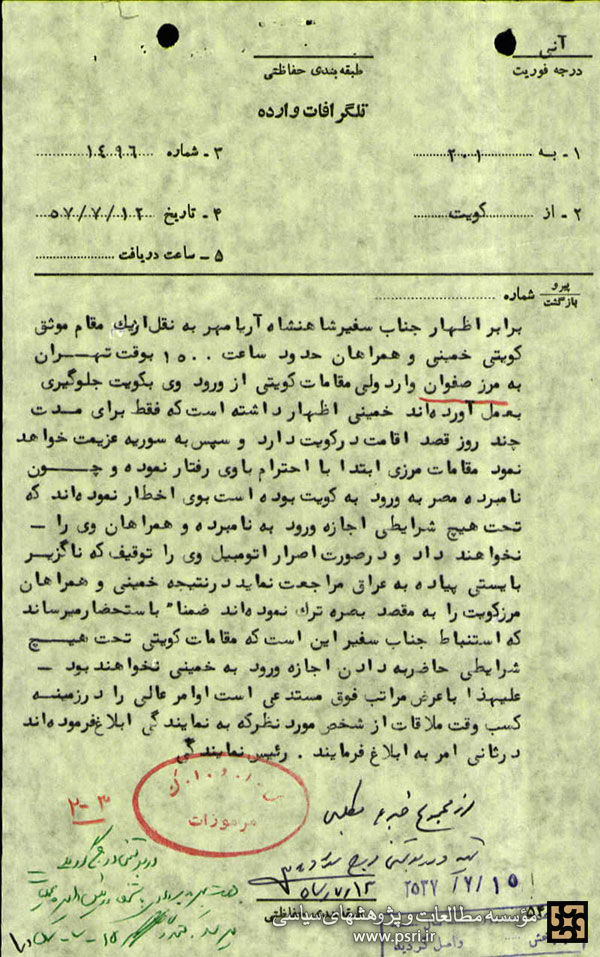 آنی
درجه فوریت
طبقه‌بندی حفاظتی
تلگرافات وارده
۱ - به ۲۰۱
۳ - شماره ۱۴۹۶
۲ - از کویت
۴ - تاریخ ۵۷/۷/۱۲
۵ - ساعت دریافت
پیرو
بازگشت
شماره
برابر اظهار جناب سفیر شاهنشاه آریامهر به نقل از یک مقام موثق
کویتی خمینی و همراهان حدود ساعت ۱۵۰۰ بوقت تهران
به مرز صفوان وارد ولی مقامات کویتی از ورود وی بکویت جلوگیری
بعمل آورده‌اند خمینی اظهار داشته است که فقط برای مدت
چند روز قصد اقامت در کویت دارد و سپس به سوریه عزیمت خواهد
نمود مقامات مرزی ابتدا با احترام با وی رفتار نموده و چون
نامبرده مصر به ورود به کویت بوده است بوی اخطار نموده‌اند که
تحت هیچ شرایطی اجازه ورود به نامبرده و همراهان وی را -
نخواهند داد و در صورت اصرار اتومبیل وی را توقیف که ناگزیر
بایستی پیاده به عراق مراجعت نماید در نتیجه خمینی و همراهان
مرز کویت را به مقصد بصره ترک نموده‌اند ضمناً باستحضار میرساند
که استنباط جناب سفیر این است که مقامات کویتی تحت هیچ
شرایطی حاضر به دادن اجازه ورود به خمینی نخواهند بود -
علیهذا با عرض مراتب فوق مستدعی است اوامر عالی را در زمینه
کسب وقت ملاقات از شخص مورد نظر که به نمایندگی ابلاغ فرموده‌اند
در ثانی امر به ابلاغ فرمایند . رئیس نمایندگی
مرموزات
۳-۲
۵۷/۷/۱۲
۲۵۳۷/۷/۱۵
طبقه‌بندی حفاظتی
مؤسسه مطالعات و پژوهشهای سیاسی
www.psri.ir
واصل گردید